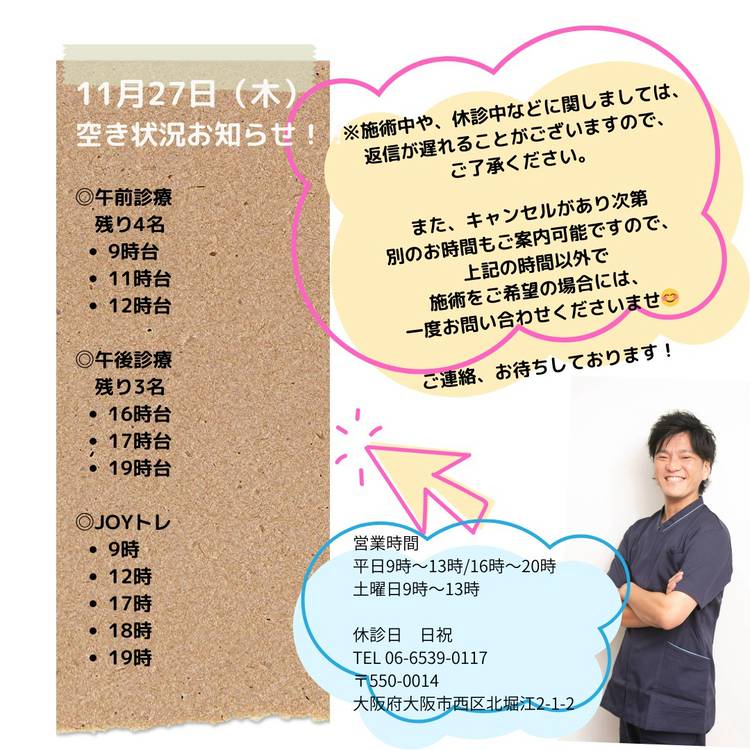 11月27日（木）
空き状況お知らせ！
◎午前診療
残り4名
• 9時台
• 11時台
• 12時台
◎午後診療
残り3名
• 16時台
• 17時台
• 19時台
◎JOYトレ
• 9時
• 12時
• 17時
• 18時
• 19時
※施術中や、休診中などに関しましては、
返信が遅れることがございますので、
ご了承ください。
また、キャンセルがあり次第
別のお時間もご案内可能ですので、
上記の時間以外で
施術をご希望の場合には、
一度お問い合わせくださいませ😊
ご連絡、お待ちしております！
営業時間
平日9時〜13時/16時〜20時
土曜日9時〜13時
休診日　日祝
TEL 06-6539-0117
〒550-0014
大阪府大阪市西区北堀江2-1-2